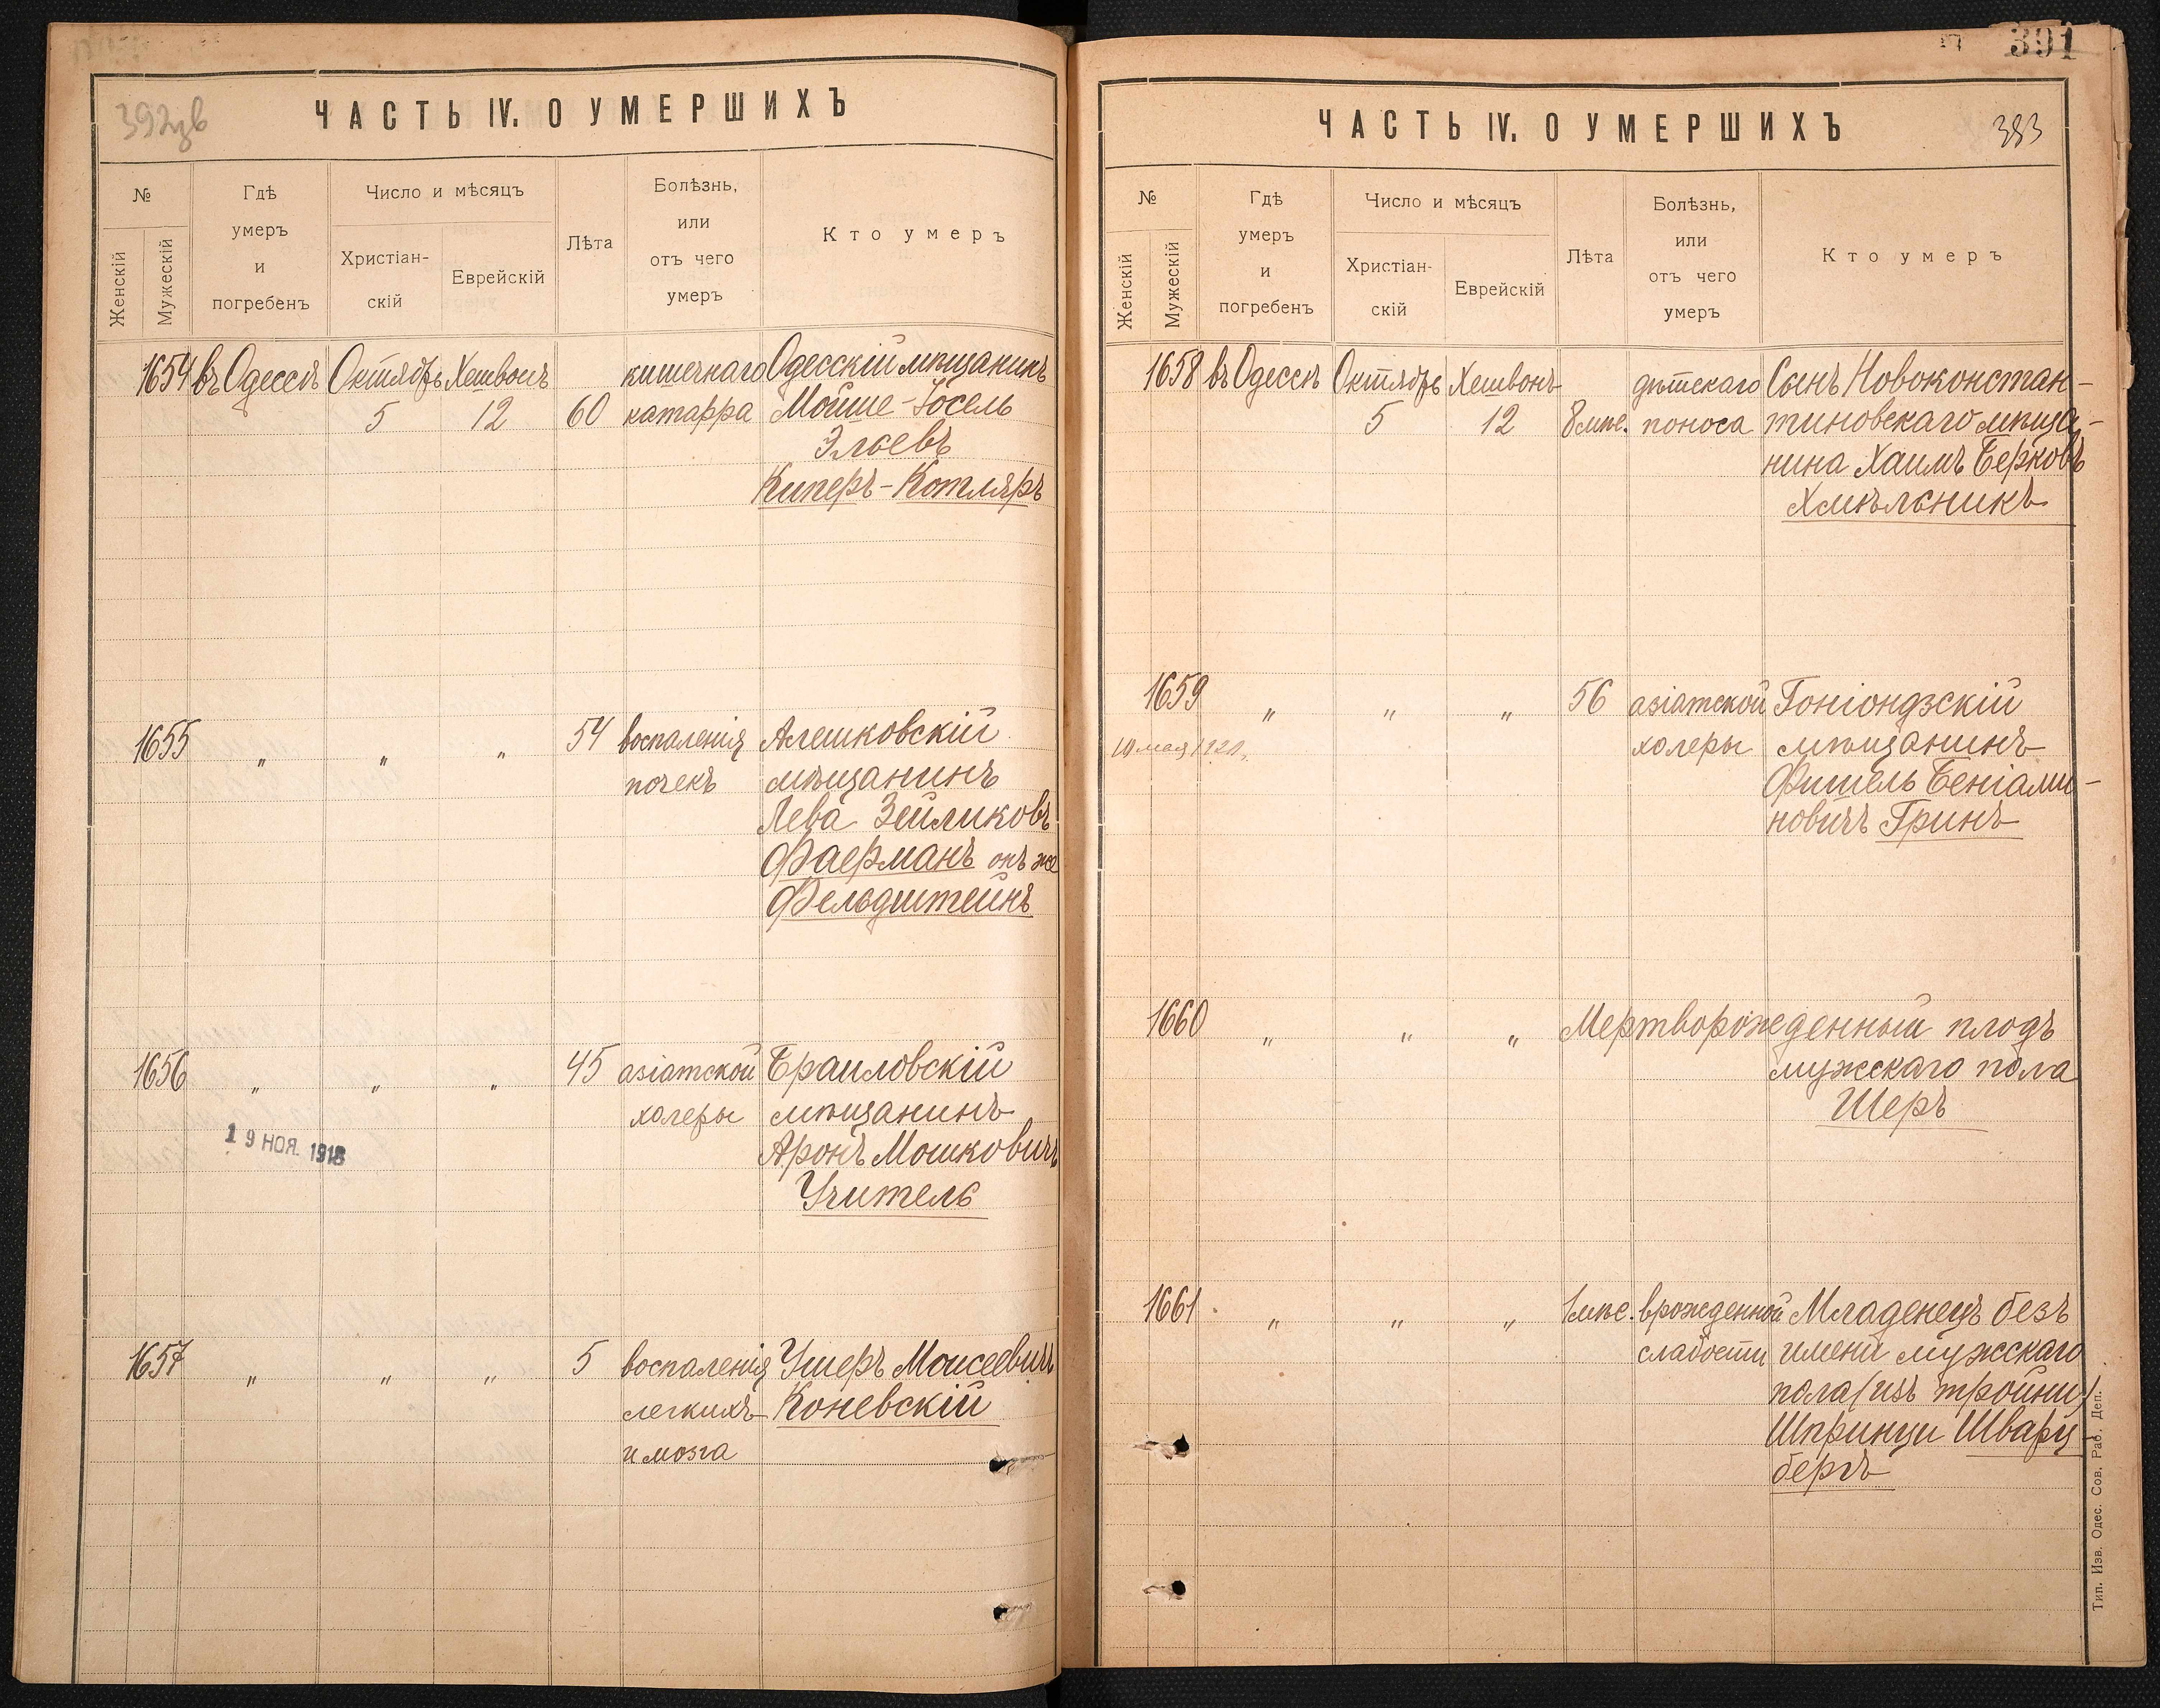 392зв
ЧАСТЬ IV. О УМЕРШИХЪ
№
Женскій
Мужескій
Гдѣ
умеръ
и
погребенъ
Число и мѣсяцъ
Христіан-
скій
Еврейскій
Лѣта
Болѣзнь,
или
отъ чего
умеръ
Кто умеръ
1654 въ Одессѣ Октябрь Хешвонъ кишечнаго Одесскій мѣщанинъ
5 12 60 катарра Мойше-Іосель
Элоевъ
Киперъ-Котляръ
1655 „ „ „ 54 воспаленія Алешковскій
почекъ мѣщанинъ
Лева Зейликовъ
Фаерманъ онъ же
Фельдштейнъ
1656 „ „ „ 45 азіатской Браиловскій
холеры мѣщанинъ
Аронъ Мошковичъ
Учитель
19 НОЯ. 1918
1657 „ „ „ 5 воспаленія Ушеръ Моисеевичъ
легкихъ Коневскій
и мозга
391
ЧАСТЬ IV. О УМЕРШИХЪ
393
№
Женскій
Мужескій
Гдѣ
умеръ
и
погребенъ
Число и мѣсяцъ
Христіан-
скій
Еврейскій
Лѣта
Болѣзнь,
или
отъ чего
умеръ
Кто умеръ
1658 въ Одессѣ Октябрь Хешвонъ дѣтскаго Сынъ Новоконстан-
5 12 8 мѣс. поноса тиновскаго мѣща-
нина Хаимъ Берковъ
Хмѣльникъ
1659 „ „ „ 56 азіатской Гоніондзскій
10 мая 1921. холеры мѣщанинъ
Фишель Беніами-
новичъ Гринъ
1660 „ „ „ Мертворожденный плодъ
мужскаго пола
Шеръ
1661 „ „ „ 1 мѣс. врожденной Младенецъ безъ
слабости имени мужскаго
пола (изъ тройни)
Шпринци Шварц-
бергъ
Тип. Изв. Одес. Сов. Раб. Деп.